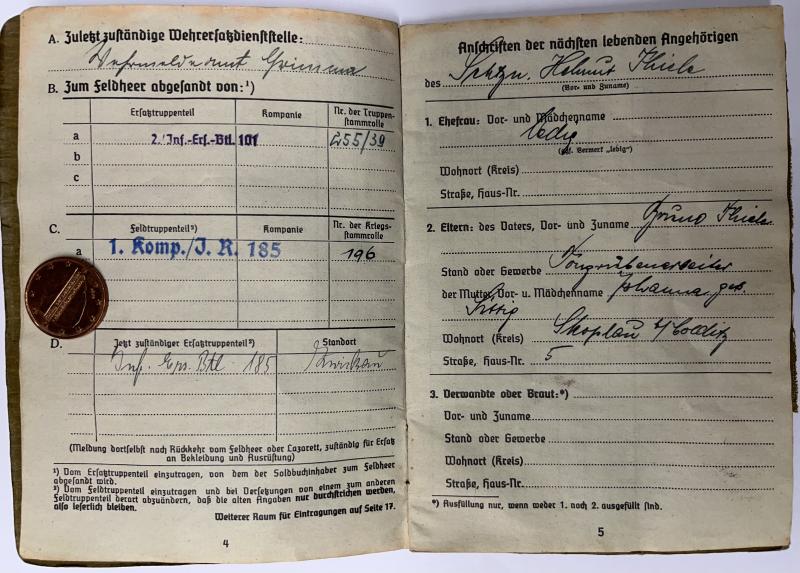 A. Zuletzt zuständige Wehrersatzdienststelle:
Wehrmeldeamt Grimma
B. Zum Feldheer abgesandt von:¹)
Ersatztruppenteil Kompanie Nr. der Truppen-
stammrolle
a 2. Inf.-Ers.-Btl. 101 255/39
b
c
C. Feldtruppenteil²) Kompanie Nr. der Kriegs-
stammrolle
a 1. Komp./J. R. 185 196
D. Jetzt zuständiger Ersatztruppenteil²) Standort
Inf. Ers. Btl. 185 Zwickau
(Meldung dortselbst nach Rückkehr vom Feldheer oder Lazarett, zuständig für Ersatz
an Bekleidung und Ausrüstung)
¹) Vom Ersatztruppenteil einzutragen, von dem der Soldbuchinhaber zum Feldheer
abgesandt wird.
²) Vom Feldtruppenteil einzutragen und bei Versetzungen von einem zum anderen
Feldtruppenteil derart abzuändern, daß die alten Angaben nur durchstrichen werden,
also leserlich bleiben.
Weiterer Raum für Eintragungen auf Seite 17.
4
Anschriften der nächsten lebenden Angehörigen
des Schtzn. Helmut Thiele
(Vor- und Zuname)
1. Ehefrau: Vor- und Mädchenname
ledig
(ggf. Vermerk „ledig")
Wohnort (Kreis)
Straße, Haus-Nr.
2. Eltern: des Vaters, Vor- und Zuname Bruno Thiele
Stand oder Gewerbe Tongrubenarbeiter
der Mutter, Vor- u. Mädchenname Johanna geb.
Sittig
Wohnort (Kreis) Skoplau b/Colditz
Straße, Haus-Nr. 5
3. Verwandte oder Braut:*)
Vor- und Zuname
Stand oder Gewerbe
Wohnort (Kreis)
Straße, Haus-Nr.
*) Ausfüllung nur, wenn weder 1. noch 2. ausgefüllt sind.
5